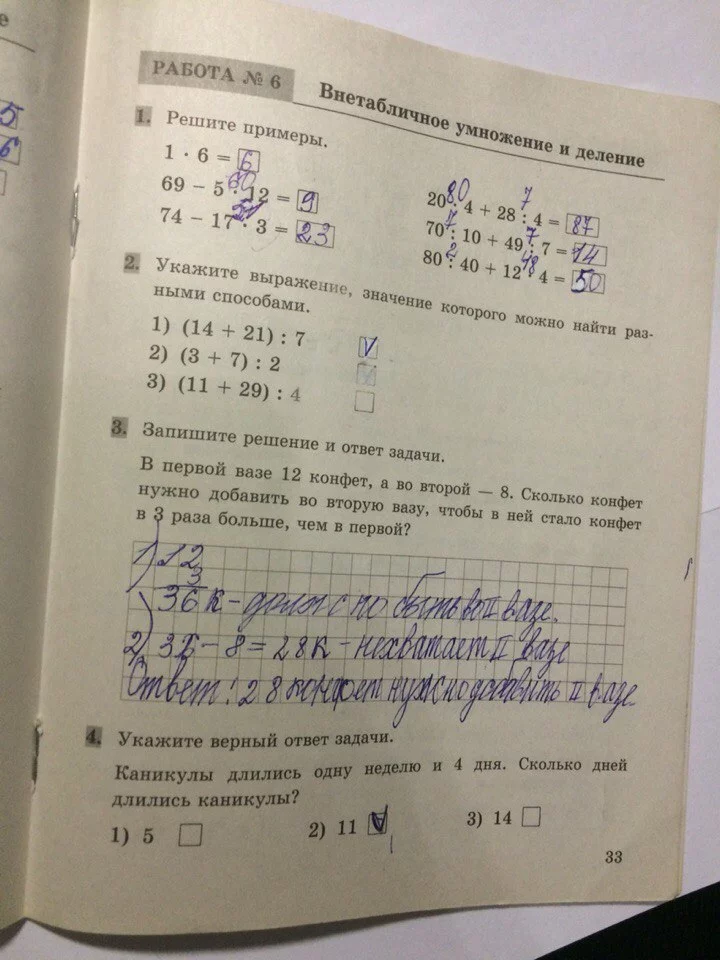 е
5
6
РАБОТА № 6
Внетабличное умножение и деление
1. Решите примеры.
1 · 6 = 6
60
69 − 5 · 12 = 9
51
74 − 17 · 3 = 23
80 7
20 · 4 + 28 : 4 = 87
7 7
70 : 10 + 49 : 7 = 14
2 48
80 : 40 + 12 · 4 = 50
2. Укажите выражение, значение которого можно найти раз-
ными способами.
1) (14 + 21) : 7 V
2) (3 + 7) : 2
3) (11 + 29) : 4
3. Запишите решение и ответ задачи.
В первой вазе 12 конфет, а во второй — 8. Сколько конфет
нужно добавить во вторую вазу, чтобы в ней стало конфет
в 3 раза больше, чем в первой?
1) 12
3
36 к - должно быть во II вазе.
2) 36 - 8 = 28 к - нехватает II вазе
Ответ: 28 конфет нужно добавить II вазе.
4. Укажите верный ответ задачи.
Каникулы длились одну неделю и 4 дня. Сколько дней
длились каникулы?
1) 5 2) 11 V 3) 14
33